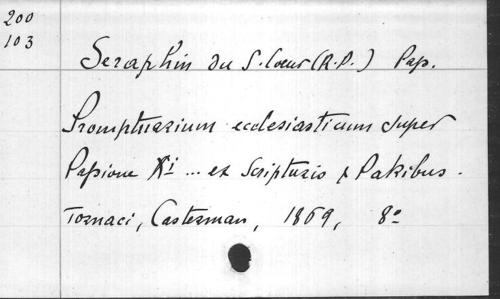 200
103
Seraphin du S. Coeur (R.P.) Pas.
Promptuarium ecclesiasticum super
Passione Xi ... ex Scripturis & Patribus.
Tornaci, Casterman, 1869, 8º